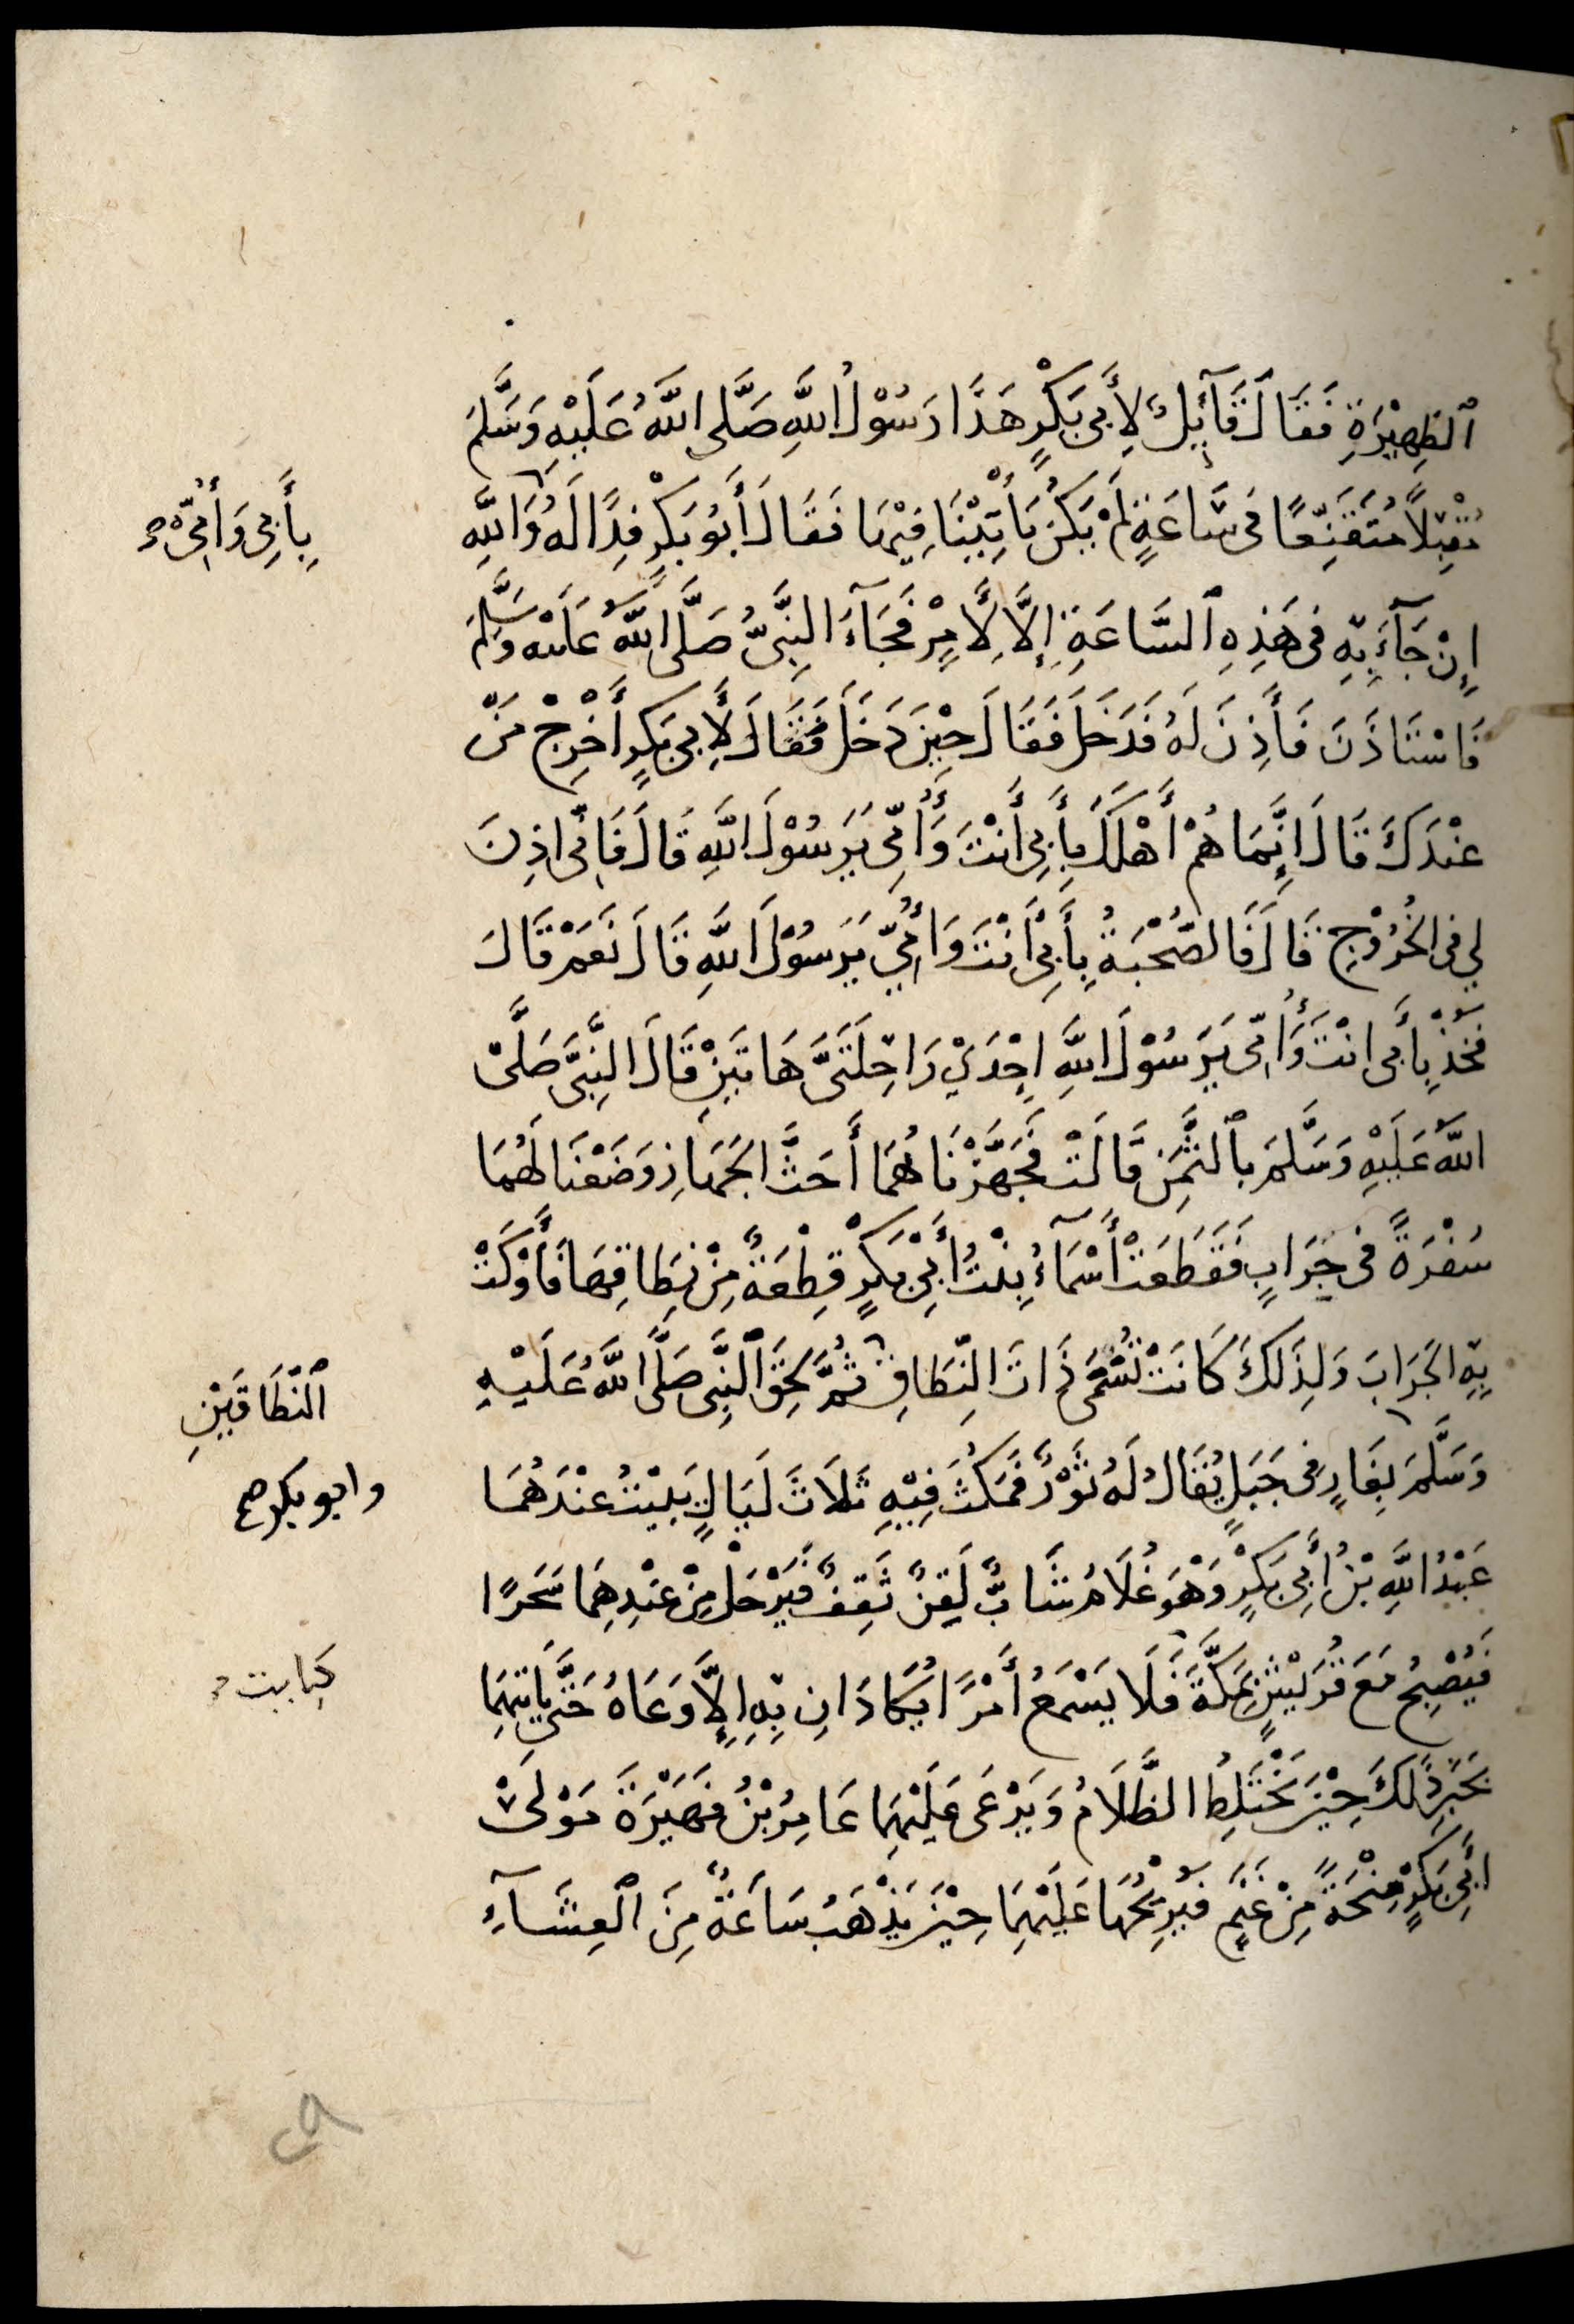 ٱلظَّهِيْرَةِ فَقَالَ قَآئِلٌ لِأَبِى بَكْرٍ هَذَا رَسُوْلُ اللَّهِ صَلَّى اللَّهُ عَلَيْهِ وَسَلَّمَ
مُقْبِلًا مُتَقَنِّعًا فِى سَّاعَةٍ لَمْ يَكُنْ يَأْتِيْنَا فِيْهَا فَقَالَ أَبُو بَكْرٍ فِدًا لَهُ وَاللَّهِ
بِأَبِى وَأُمِّى
إِنْ جَآءَ بِهِ فِى هَذِهِ ٱلسَّاعَةِ إِلَّا لَأَمْرٌ فَجَآءَ النَّبِىُّ صَلَّى اللَّهُ عَلَيْهِ وَسَلَّمَ
فَاسْتَاذَنَ فَأَذِنَ لَهُ فَدَخَلَ فَقَالَ حِيْنَ دَخَلَ فَقَالَ لِأَبِى بَكْرٍ أَخْرِجْ مَنْ
عِنْدَكَ قَالَ إِنَّمَا هُمْ أَهْلُكَ بِأَبِى أَنْتَ وَأُمِّى يَرَسُوْلَ اللَّهِ قَالَ فَإِنِّى اذِنَ
لِي فِى الْخُرُوْجِ قَالَ فَالصُّحْبَةُ بِأَبِى أَنْتَ وَأُمِّيْ يَرَسُوْلَ اللَّهِ قَالَ نَعَمْ قَالَ
فَخُذْ بِأَبِى انْتَ وَأُمِّى يَرَسُوْلَ اللَّهِ إِحْدَىْ رَاحِلَتَىَّ هَاتَيْنِ قَالَ النَّبِىُّ صَلَّىْ
اللَّهُ عَلَيْهِ وَسَلَّمَ بِٱلثَّمَنِ قَالَتْ فَجَهَّزْنَاهُمَا أَحَثَّ الْجَهَازِ وَضَعْنَا لَهُمَا
سُفْرَةً فِى جِرَابٍ فَقَطَعَتْ أَسْمَآءُ بِنْتُ أَبِىْ بَكْرٍ قِطْعَةً مِنْ نِطَاقِهَا فَأَوْكَتْ
بِهِ الْجَرَابَ وَلِذَلِكَ كَانَتْ تُسَمَّى ذَاتَ النِّطَاقِ ثُمَّ لَحِقَ ٱلنَّبِىُّ صَلَّى اللَّهُ عَلَيْهِ
ٱلنِّطَاقَيْنِ
وَسَلَّمَ بِغَارٍ فِى جَبَلٍ يُقَالُ لَهُ ثَوْرٌ فَمَكَثَ فِيْهِ ثَلَاثَ لَيَالٍ يَبِيْتُ عِنْدَهُمَا
وابو بكر صح
عَبْدُ اللَّهِ بْنُ أَبِى بَكْرٍ وَهْوَ غُلَامٌ شَابٌّ لَقِنٌ ثَقِفٌ فَيَرْحَلُ مِنْ عِنْدِهِمَا سَحَرًا
فَيُصْبِحُ مَعَ قُرَيْشٍ بِمَكَّةَ فَلَا يَسْمَعُ أَمْرًا يُكَادَانِ بِهِ إِلَّا وَعَاهُ حَتَّى يَاتِيَهُمَا
كبايت
بِخَبَرِ ذَلِكَ حِيْنَ يَخْتَلِطُ الظَّلَامُ وَيَرْعَى عَلَيْهِمَا عَامِرُ بْنُ فُهَيْرَةَ مَوْلَىْ
أَبِىْ بَكْرٍ مِنْحَةً مِنْ غَنَمٍ فَيُرِيحُهَا عَلَيْهِمَا حِيْنَ يَذْهَبُ سَاعَةٌ مِنَ ٱلْعِشَآءِ